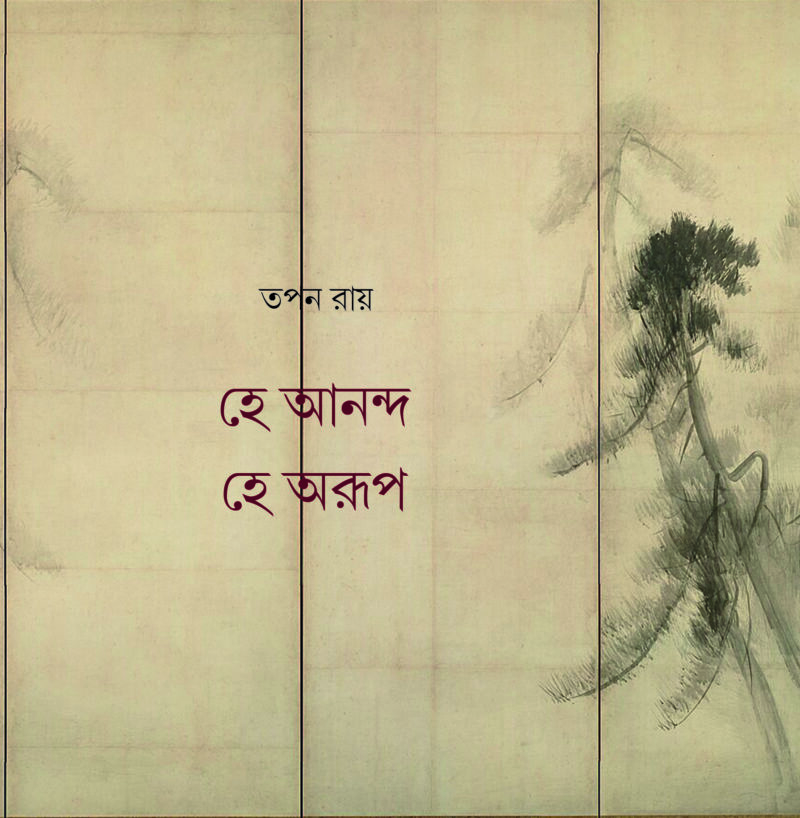 তপন রায়
হে আনন্দ
হে অরূপ